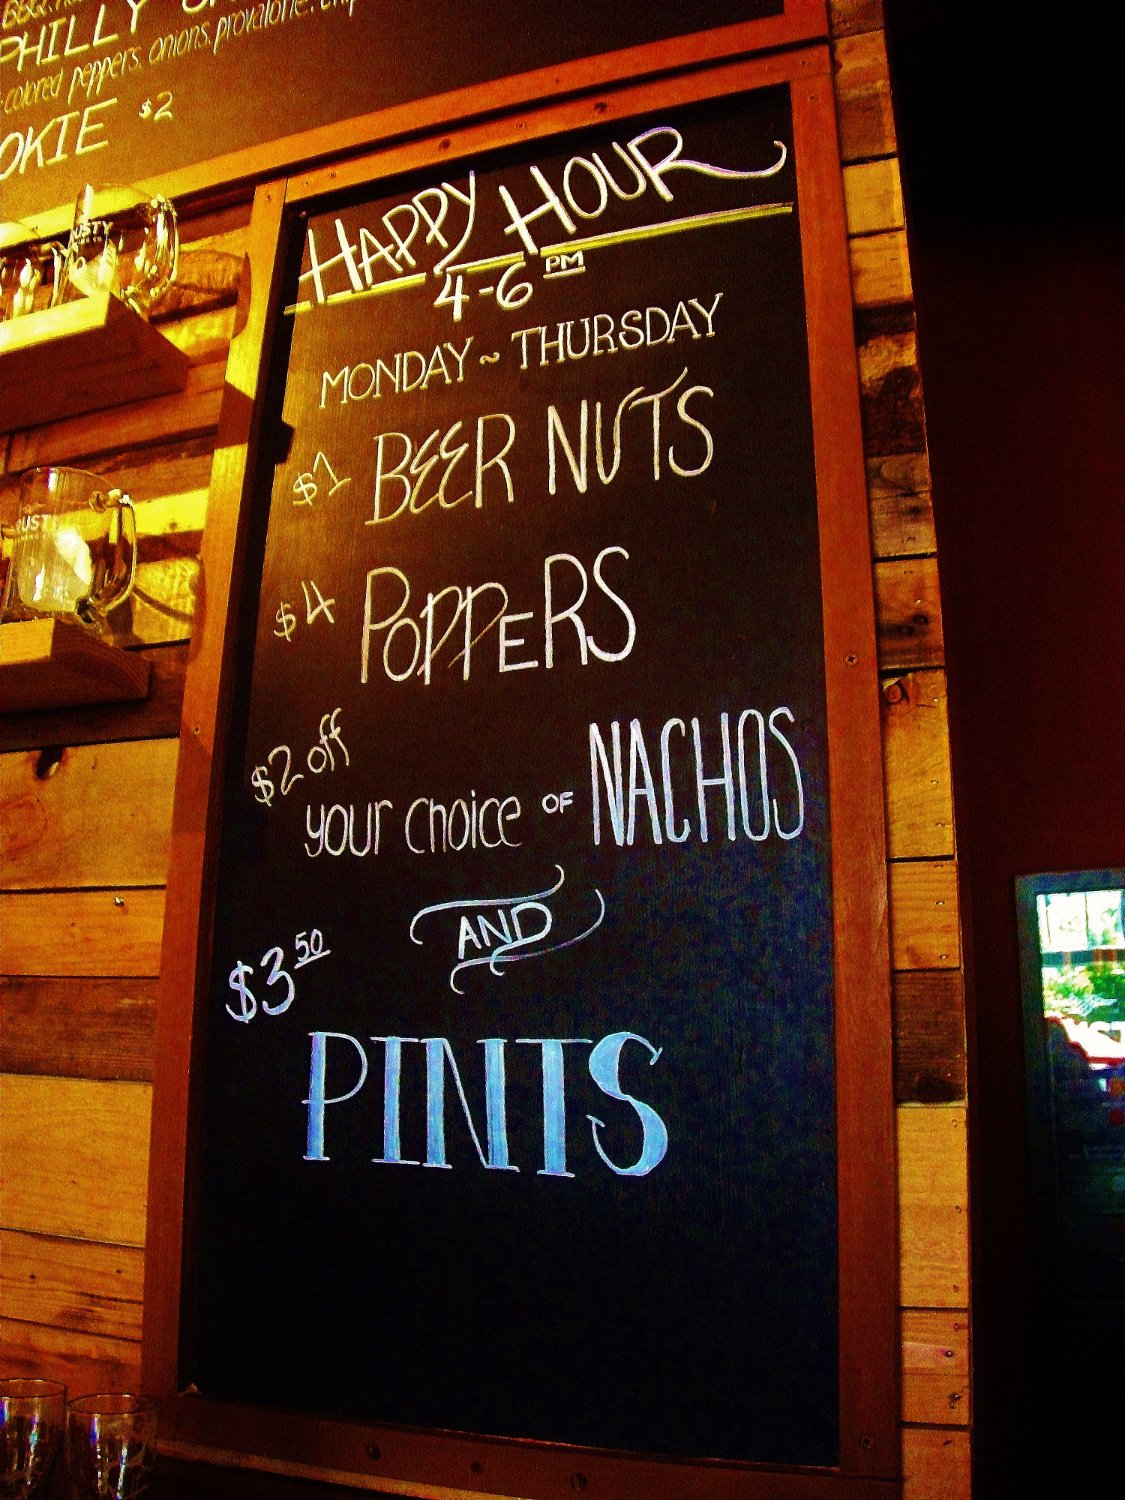 BBQ
PHILLY
colored peppers, onions, provalone,
OKIE $2
HAPPY HOUR
4-6 PM
MONDAY ~ THURSDAY
$1 BEER NUTS
$4 POPPERS
$2 off
your choice OF NACHOS
AND
$3.50
PINTS
RUSTY
RUST